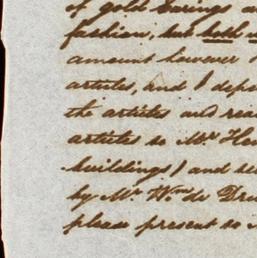 of gold earings
fashion, but both
amount however
articles, and I
the articles and
articles to Mr
buildings) and
by Mr. Wm de
please present to